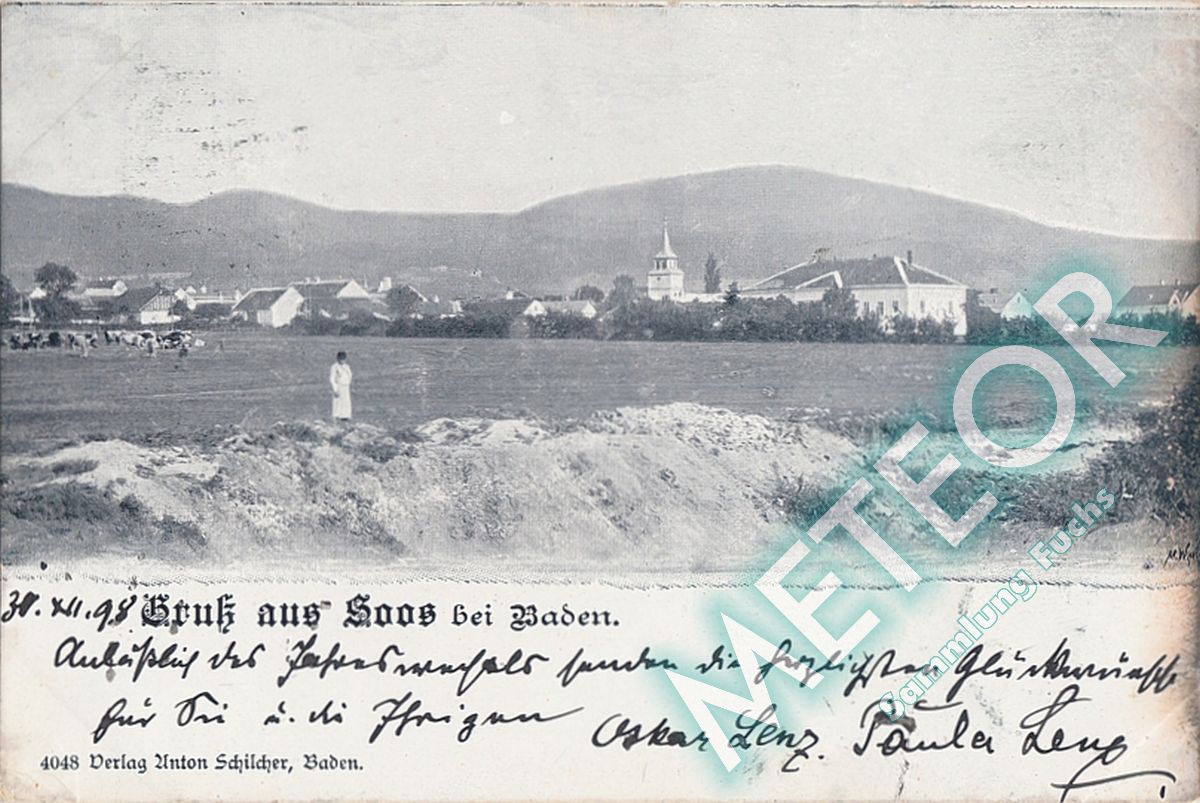 30. XII. 98 Gruß aus Soos bei Baden.
Anläßlich des Jahreswechsels senden die herzlichsten Glückwünsche
für Sie u. die Ihrigen Oskar Lenz. Paula Lenz
4048 Verlag Anton Schilcher, Baden.
METEOR
Sammlung Fuchs